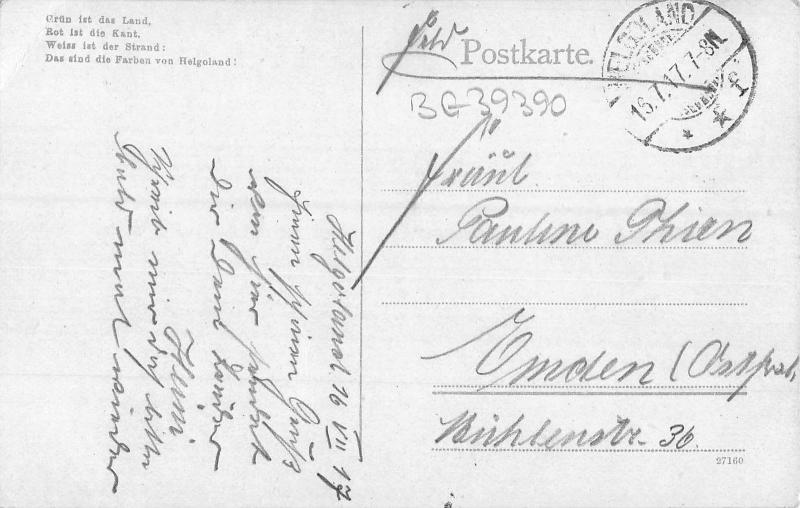 Grün ist das Land,
Rot ist die Kant,
Weiss ist der Strand:
Das sind die Farben von Helgoland!
Feld Postkarte.
HELGOLAND
16.7.17.7-8N.
BG39390
Fräul
Pauline Thien
Emden (Ostfrsl.
Mühlenstr. 36.
27160
Helgoland 16 VII 17
Einen schönen Gruß
von hier sendet
dir dein Bruder
Henri
Schreib mir doch bitte
bald mal wieder